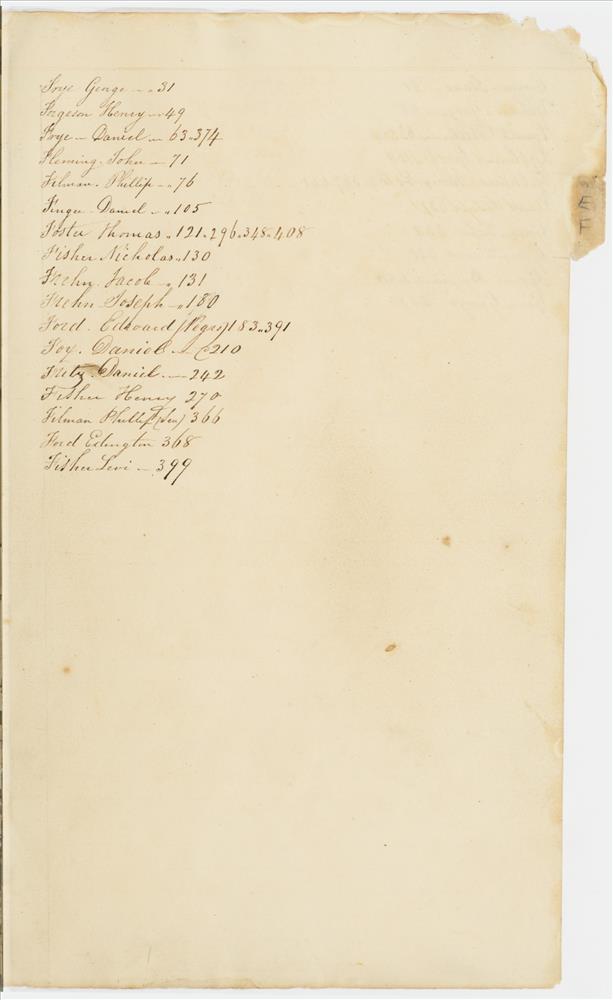 Frye George 31
Forgeson Henry 49
Frye Daniel 63.374
Fleming. John 71
Filman. Phillip 76
Finger Daniel 105
Foster Thomas 121.296.348.408
Fisher Nicholas 130
Frehn. Jacob 131
Frehn Joseph 180
Ford. Edward (Negro) 183.391
Foy. Daniel 210
Daniel 242
Fisher Henry 270
Filman Phillip (Sen) 366
Ford Edington 368
Fisher Levi 399
F